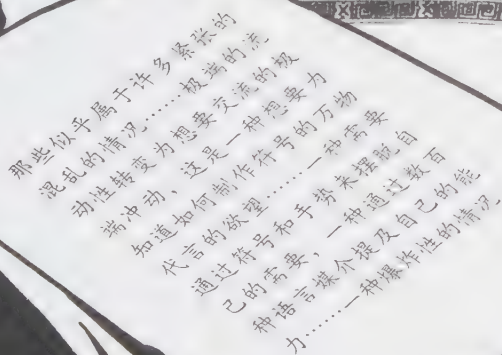 那些似乎属于许多紧张的
混乱的情况……极端的流
动性转变为想要交流的极
端冲动，这是一种想要为
知道如何制作符号的万物
代言的欲望……一种需要
通过符号和手势来摆脱自
己的需要，一种通过数百
种语言媒介提及自己的能
力……一种爆炸性的情况